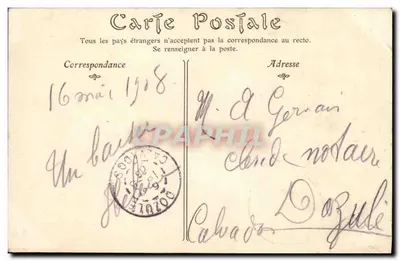 Carte Postale
Tous les pays étrangers n'acceptent pas la correspondance au recto.
Se renseigner à la poste.
Correspondance
Adresse
16 mai 1908
Un baiser
M. A Gervais
clerc notaire
Dozulé
Calvados
DOZULE
CALVADOS
CARTAPHILIE